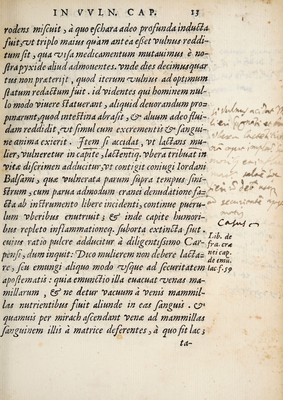 IN VVLN. CAP. 13
rodens miscuit, à quo eschara adeo profunda inducta
fuit, vt triplo maius quàm antea esset vulnus reddi-
tum sit, qua visa medicamentum mutauimus è no-
stra pyxide aliud admouentes. vnde dies decimusquar
tus non præterijt, quod iterum vulnus ad optimum
statum redactum fuit. id videntes qui hominem nul-
lo modo viuere statuerant, aliquid deuorandum pro-
pinarunt, quod intestina abrasit, & aluum adeo flui-
dam reddidit, vt simul cum excrementis & sangui-
ne anima exierit. Item si accidat, vt lactans mu-
lier, vulneretur in capite, lactentiq. vbera tribuat in
vitæ discrimen adducitur, vt contigit coniugi Iordani
Balsami, qua vulnerata parum supra tempus sini-
strum, cum parua admodum cranei denudatione fa-
cta ab instrumento libere incidenti, continue pueru-
lum vberibus enutriuit; & inde capite humori-
bus repleto inflammationeq. suborta extincta fuit.
cuius ratio pulcre adducitur à diligentissimo Car-
pensi, dum inquit: Dico mulierem non debere lacta-
re, seu emungi aliquo modo vsque ad securitatem
apostematis: quia emunctio illa euacuat venas ma-
millarum, & ne detur vacuum à venis mammil-
las nutrientibus fluit aliunde in eas sanguis. &
quamuis per mirach ascendant venæ ad mammillas
sanguinem illis à matrice deferentes, à quo fit lac;
ta-
Casus
Lib. de
fra. cra
nei cap.
de emū.
lac f. 59